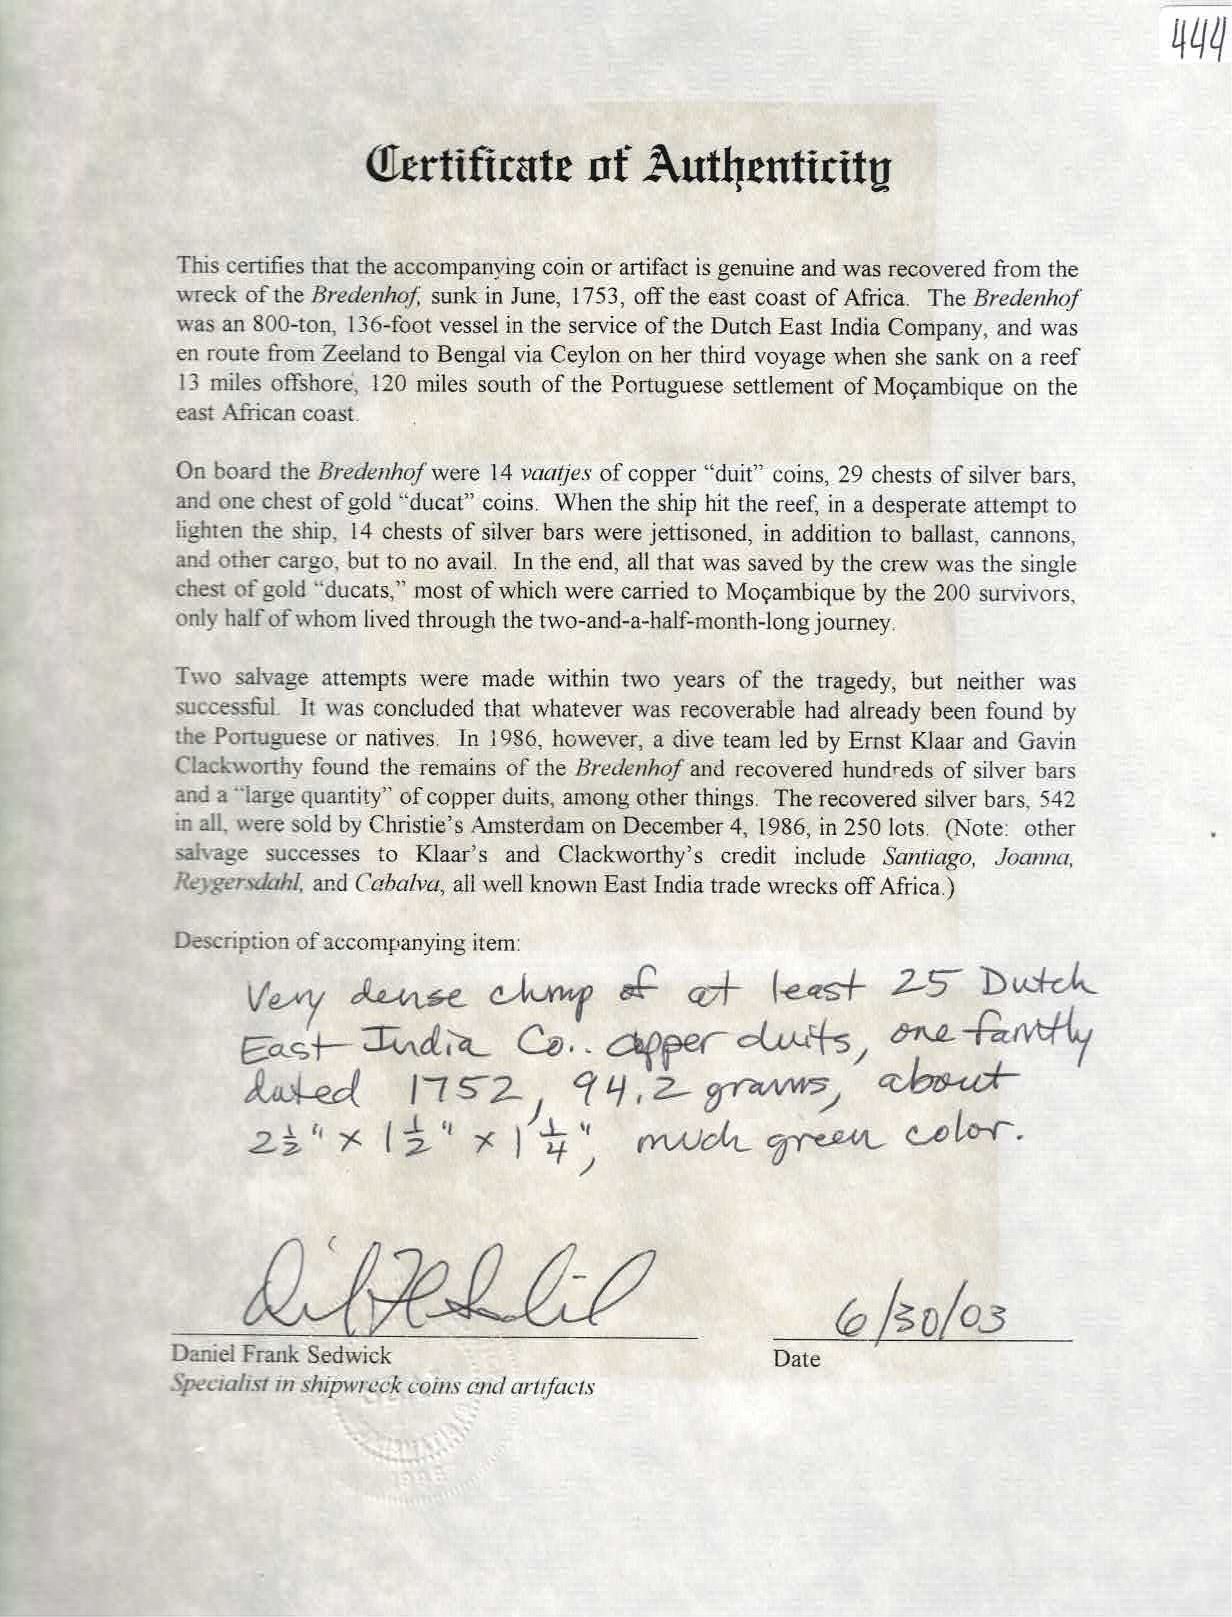 444
Certificate of Authenticity
This certifies that the accompanying coin or artifact is genuine and was recovered from the
wreck of the Bredenhof, sunk in June, 1753, off the east coast of Africa. The Bredenhof
was an 800-ton, 136-foot vessel in the service of the Dutch East India Company, and was
en route from Zeeland to Bengal via Ceylon on her third voyage when she sank on a reef
13 miles offshore, 120 miles south of the Portuguese settlement of Moçambique on the
east African coast.
On board the Bredenhof were 14 vaatjes of copper “duit” coins, 29 chests of silver bars,
and one chest of gold “ducat” coins. When the ship hit the reef, in a desperate attempt to
lighten the ship, 14 chests of silver bars were jettisoned, in addition to ballast, cannons,
and other cargo, but to no avail. In the end, all that was saved by the crew was the single
chest of gold “ducats,” most of which were carried to Moçambique by the 200 survivors,
only half of whom lived through the two-and-a-half-month-long journey.
Two salvage attempts were made within two years of the tragedy, but neither was
successful. It was concluded that whatever was recoverable had already been found by
the Portuguese or natives. In 1986, however, a dive team led by Ernst Klaar and Gavin
Clackworthy found the remains of the Bredenhof and recovered hundreds of silver bars
and a “large quantity” of copper duits, among other things. The recovered silver bars, 542
in all, were sold by Christie’s Amsterdam on December 4, 1986, in 250 lots. (Note: other
salvage successes to Klaar’s and Clackworthy’s credit include Santiago, Joanna,
Reygersdahl, and Cabalva, all well known East India trade wrecks off Africa.)
Description of accompanying item:
Very dense clump of at least 25 Dutch
East India Co.. copper duits, one faintly
dated 1752, 94.2 grams, about
2½" x 1½" x 1¼", much green color.
6/30/03
Daniel Frank Sedwick
Date
Specialist in shipwreck coins and artifacts